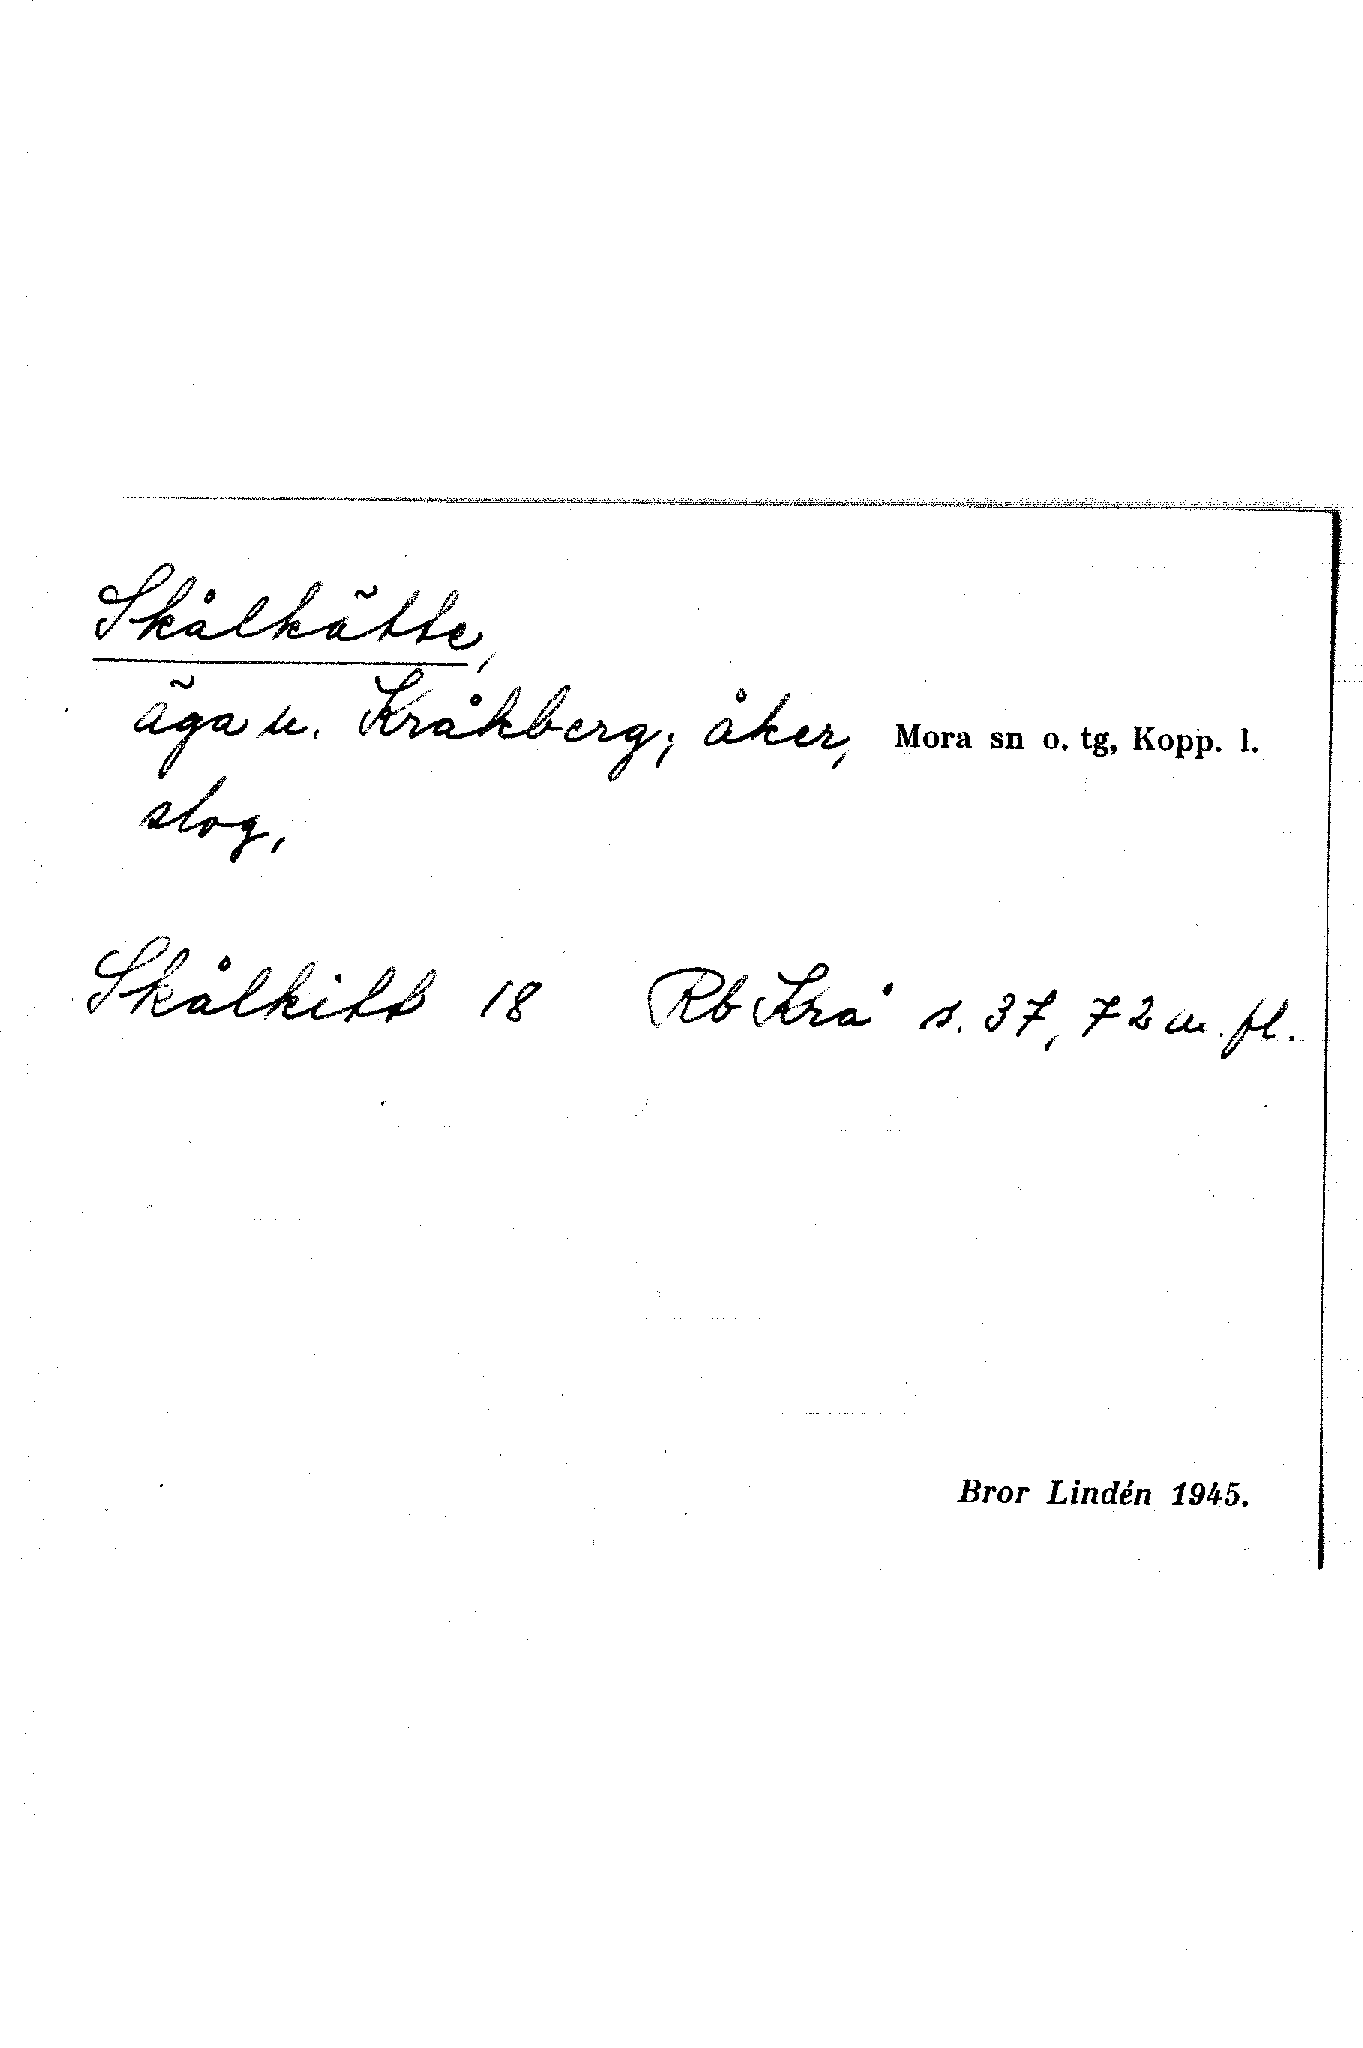 Skålkätte,
äga u. Kråkberg; åker, Mora sn o. tg, Kopp. l.
slog,
Skålkitt 18 Rb Krå s. 37, 72 m. fl.
Bror Lindén 1945.